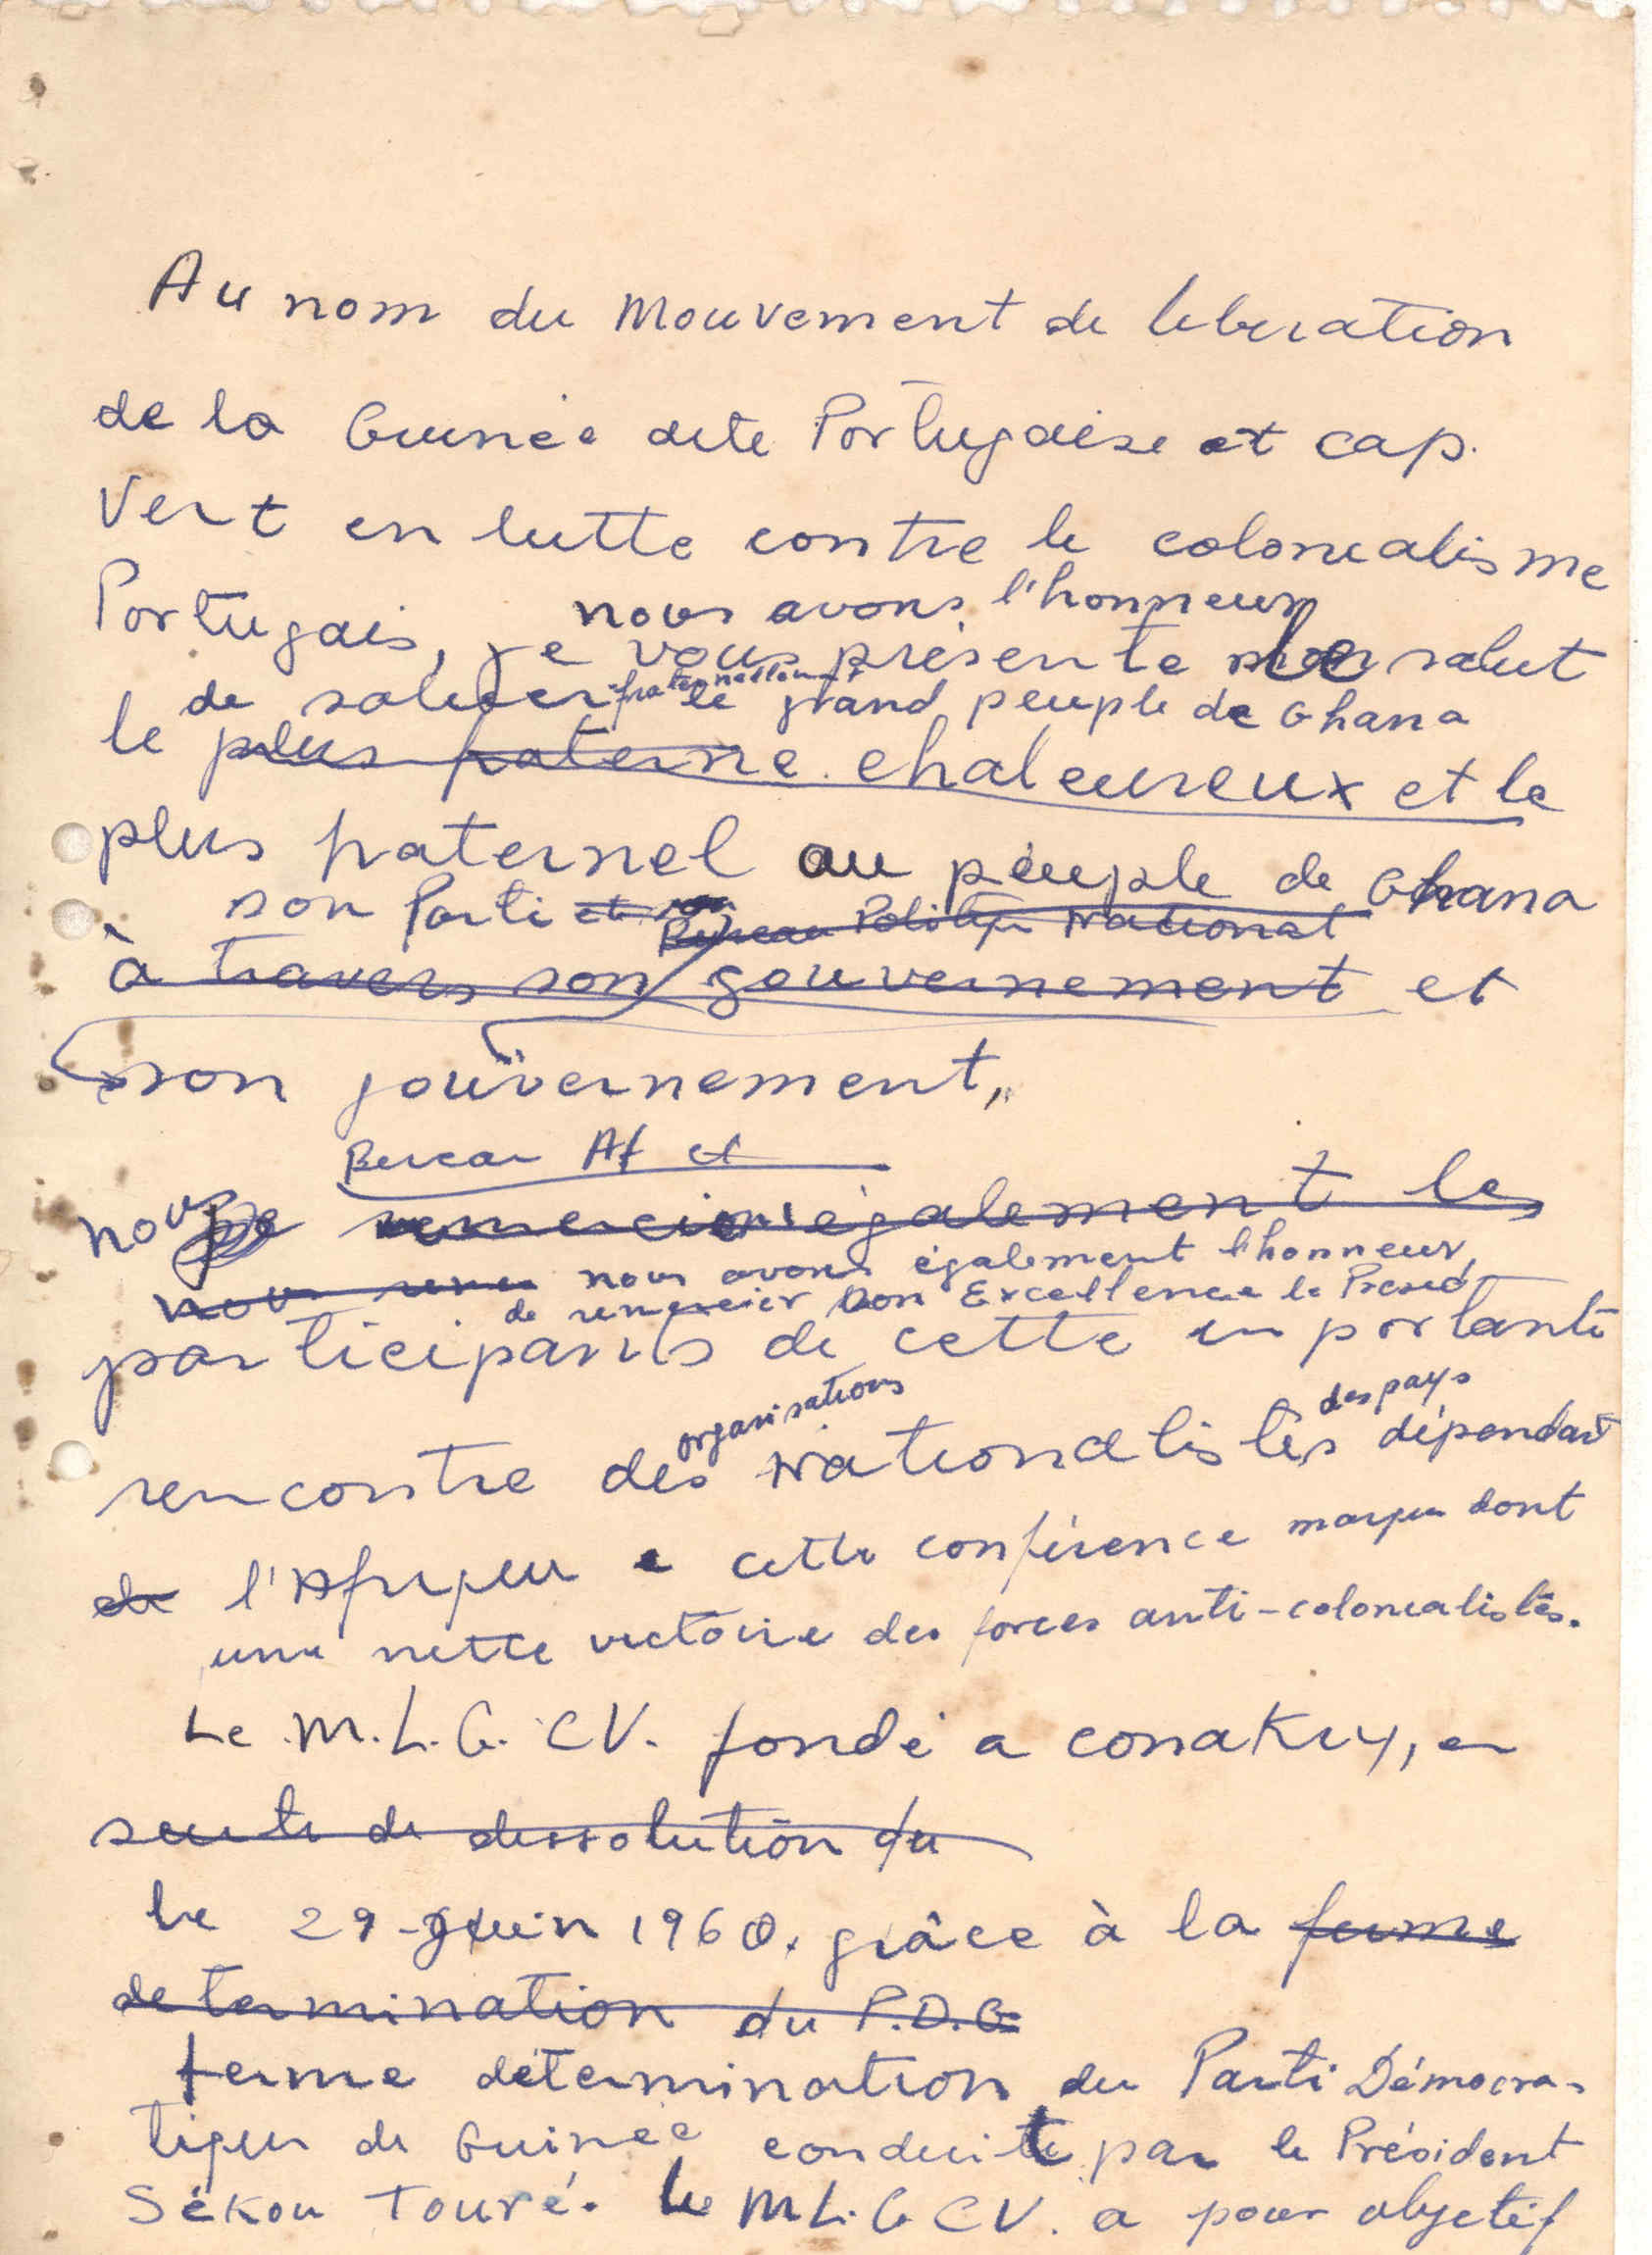 Au nom du Mouvement de liberation
de la Guinée dite Portugaise et cap.
Vert en lutte contre le colonialisme
nous avons l'honneur
Portugais, je vous présente le salut
de saluer fraternellement le grand peuple de Ghana
le plus fraterne. chaleureux et le
plus fraternel au peuple de Ghana
son Parti et Bureau Politique National
à travers son gouvernement et
son gouvernement,
Bureau Af et
nous remercions également les
nous avons également l'honneur
de remercier Son Excellence le Presid
participants de cette importante
organisations des pays
rencontre des Nationalistes dépendant
de l'Afrique cette conférence marque dont
une nette victoire des forces anti-colonialistes.
Le M.L.G.CV. fondé a conakry, en
suite de dissolution du
le 29 Juin 1960. grâce à la ferme
determination du P.D.G
ferme détermination du Parti Démocra-
tique de Guinée conduit par le Président
Sékou Touré. Le M.L.G CV. a pour objetif